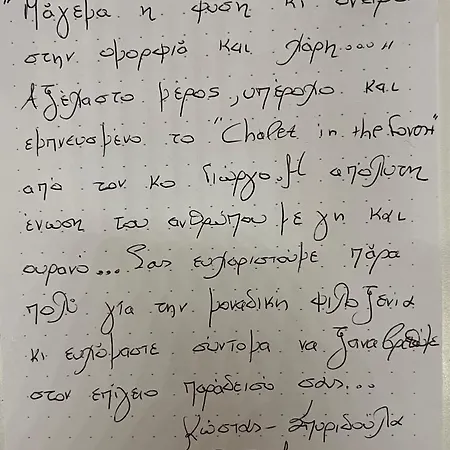 "Μάγεμα η φύση κι όνειρο
στην ομορφιά και χάρη..."
Αξέχαστο μέρος, υπέροχο και
εμπνευσμένο το "Chalet in the forest"
από τον κο Γιώργο. Η απόλυτη
ένωση του ανθρώπου με γη και
ουρανό... Σας ευχαριστούμε πάρα
πολύ για την μοναδική φιλοξενία
κι ευχόμαστε σύντομα να ξαναβρεθούμε
στον επίγειο παράδεισό σας...
Κώστας - Σπυριδούλα